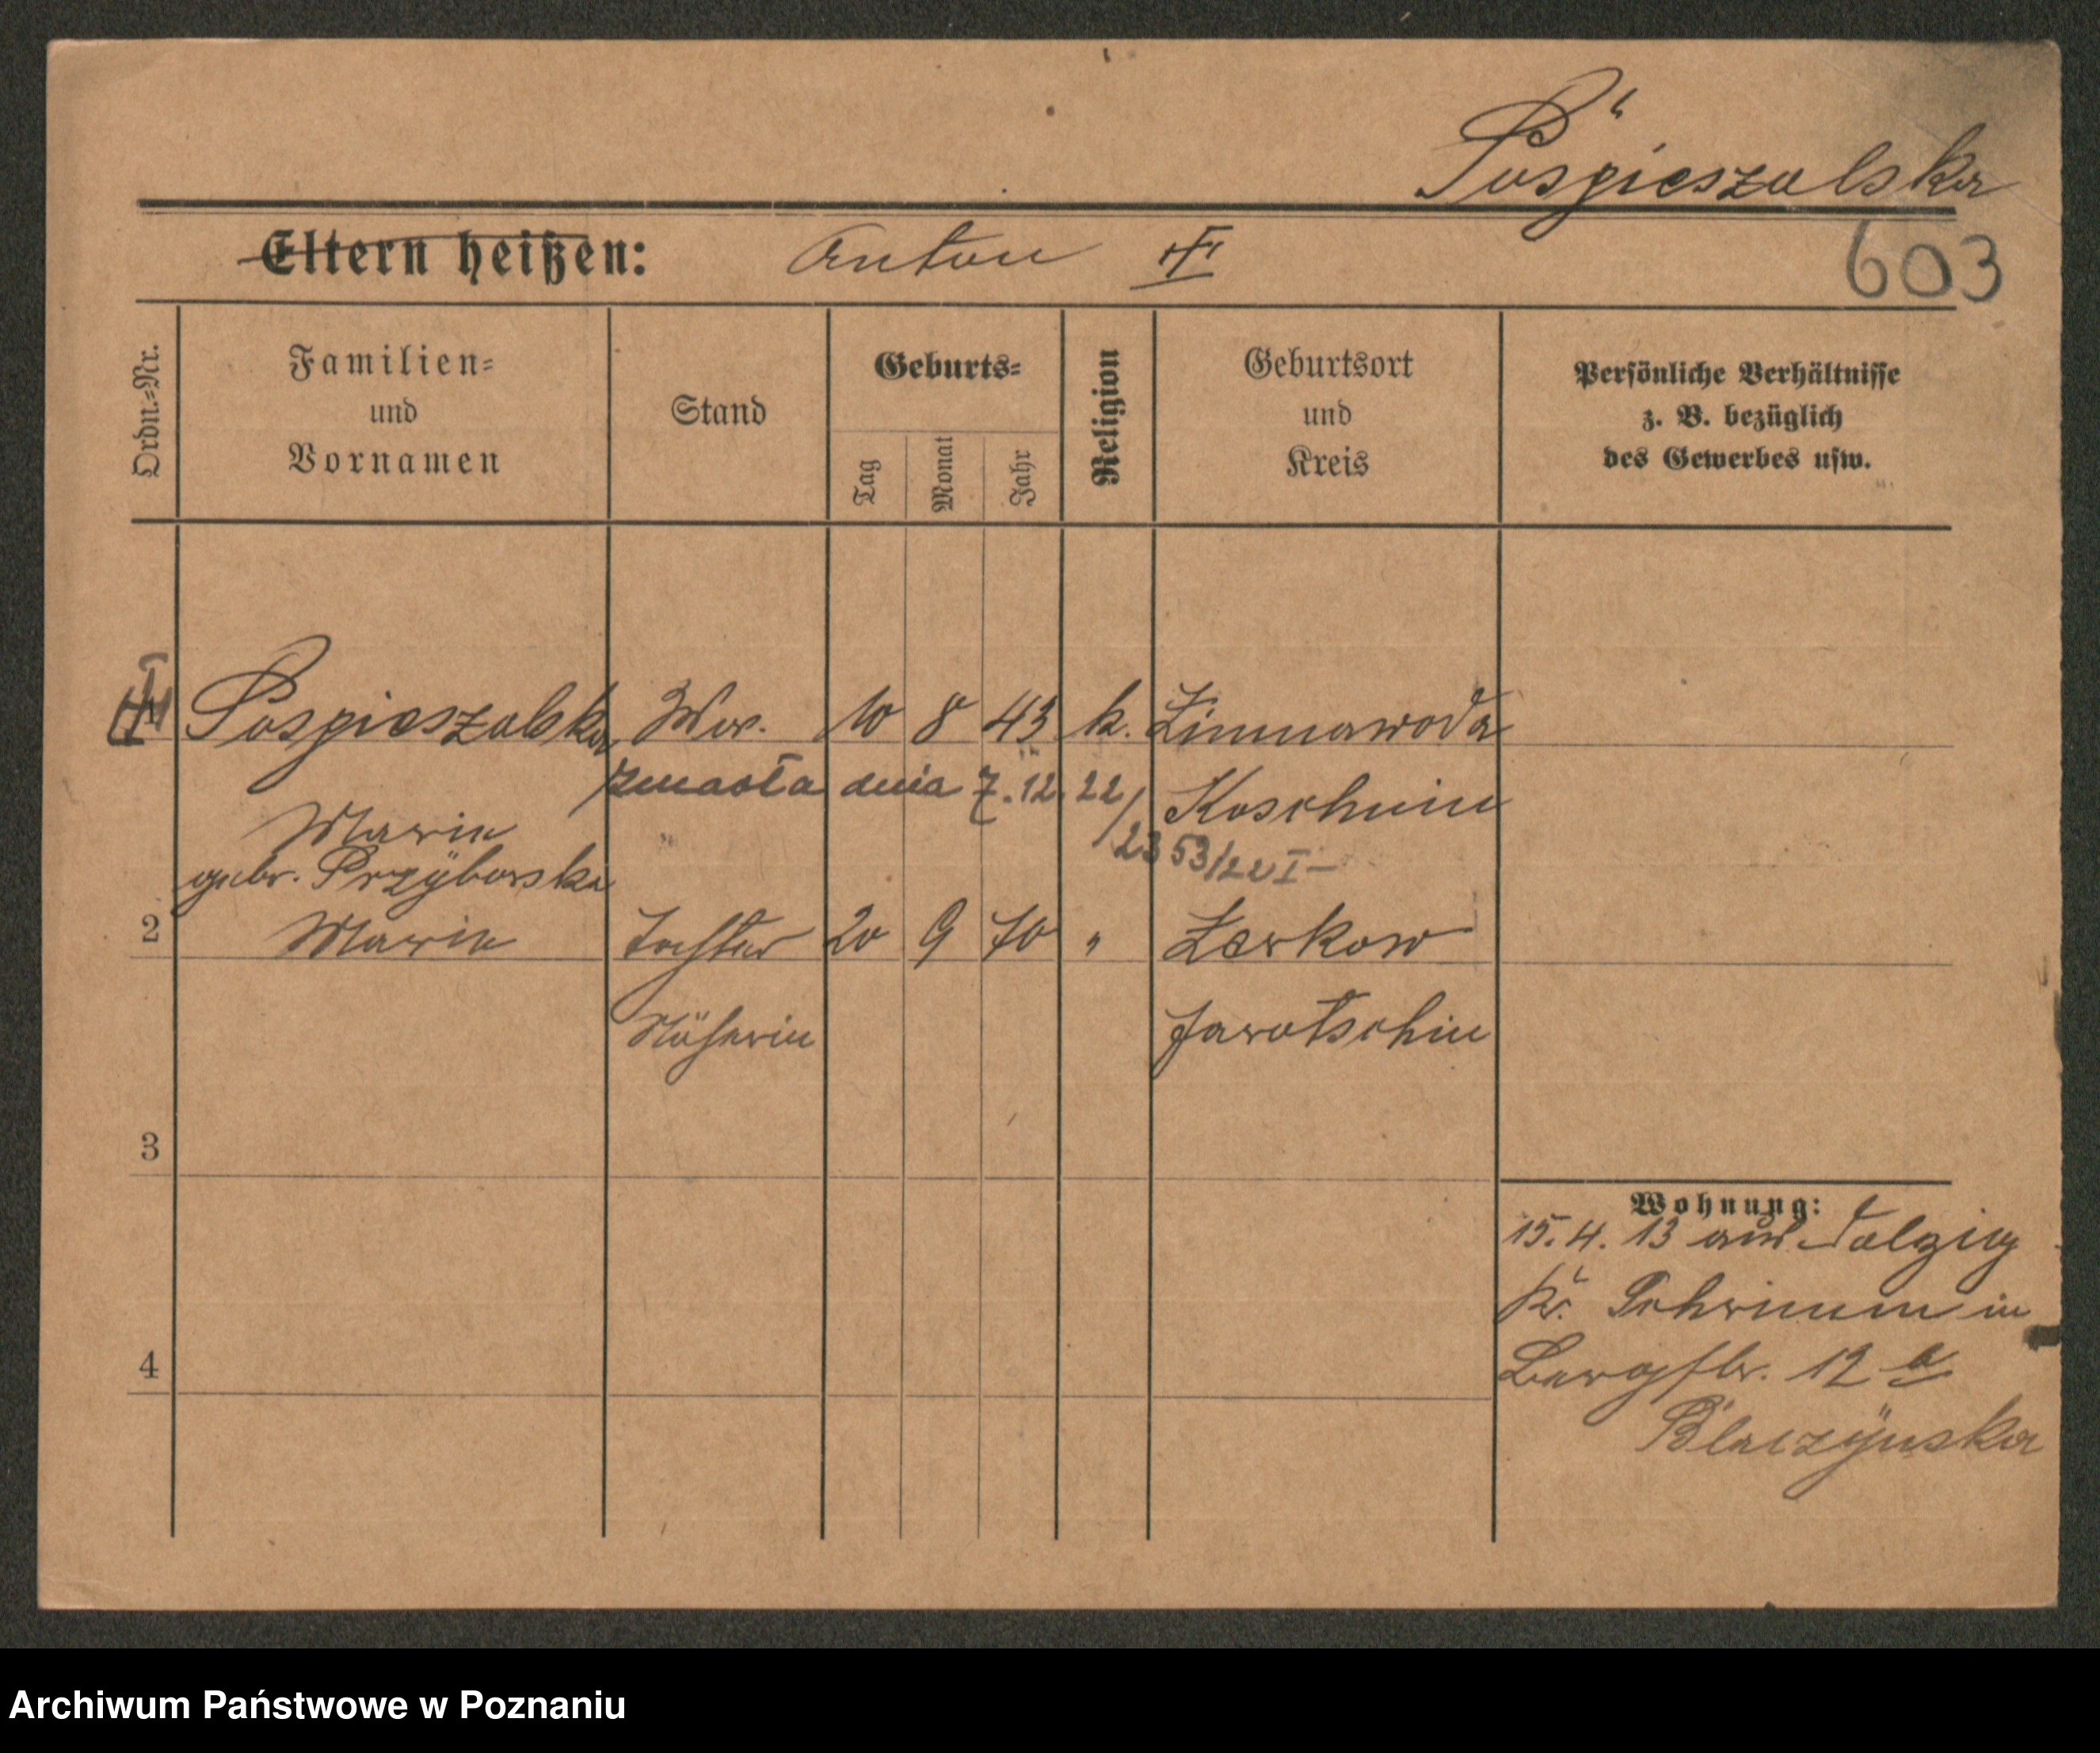 Pospieszalska
Eltern heißen: Anton
603
Ordn.-Nr.
Familien-
und
Vornamen
Stand
Geburts-
Tag
Monat
Jahr
Religion
Geburtsort
und
Kreis
Persönliche Verhältnisse
z. B. bezüglich
des Gewerbes usw.
1 Pospieszalska Ww. 10 8 43 k. Zimnawoda
zmarła dnia 7.12.22/ Koschmin
Marie
2353/22 I-
gebr. Przyborska
2 Marie Tochter 20 9 70 " Zerkow
Näherin Jarotschin
3
Wohnung:
15.4.13 aus Dolzig
Kr. Schrimm in
4
Bergstr. 12 b
Blaczynska